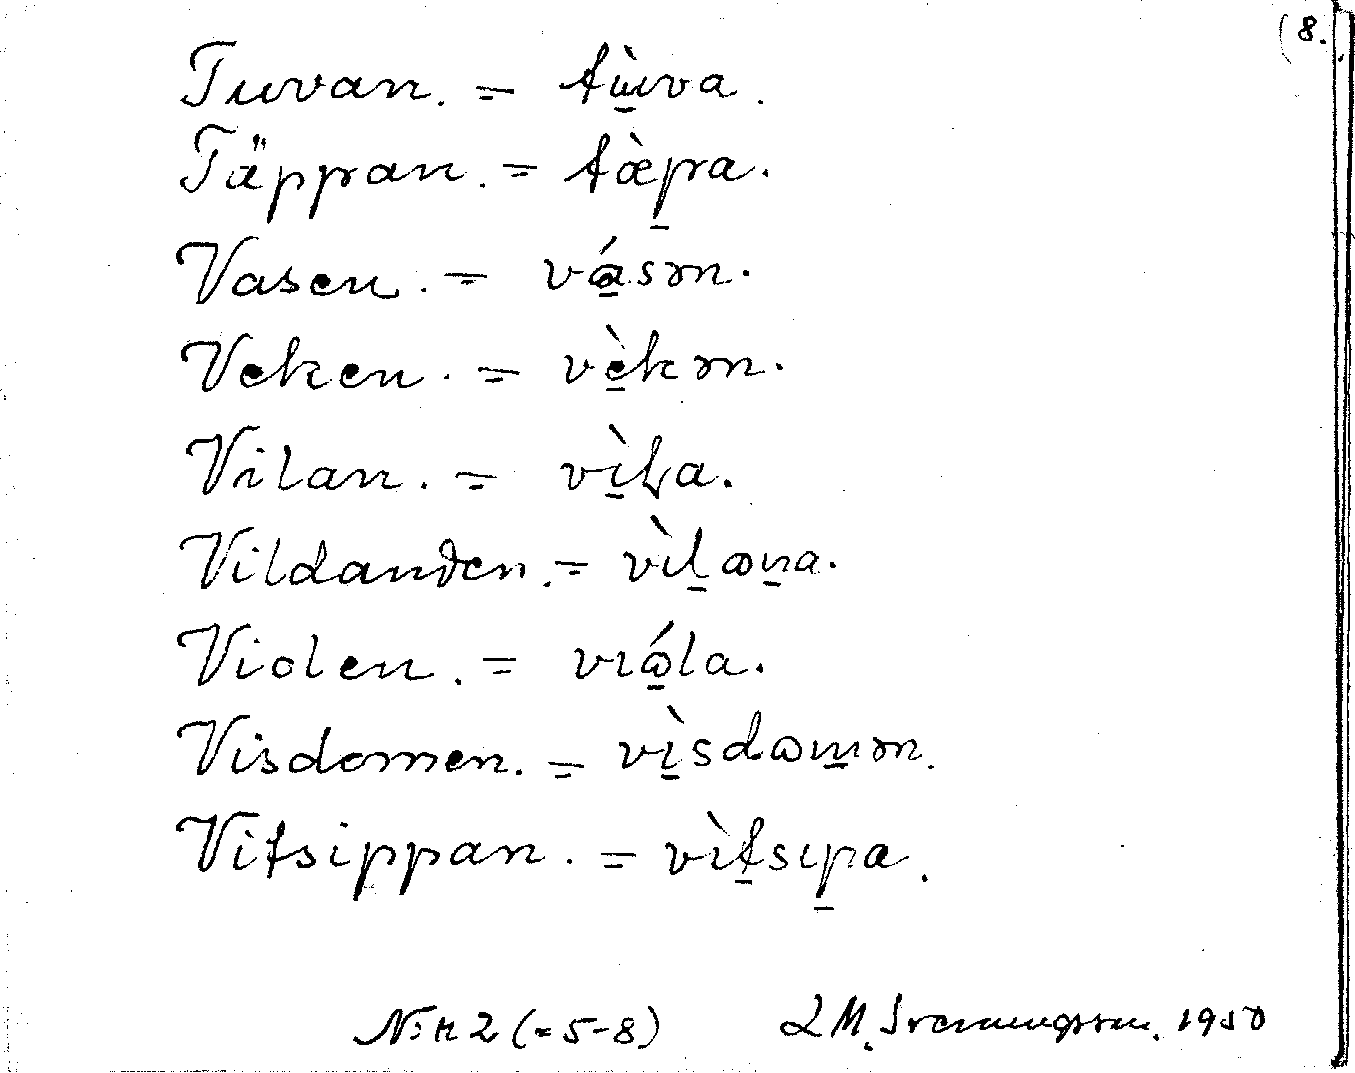 (8.
Tuvan. = tɯ̱̀va.
Täppan. = tæ̀p̱a.
Vasen. = vɑ̱́sən.
Veken. = vè̱kən.
Vilan. = vì̱ɫa.
Vildanden. = vìḻⱺṉa.
Violen. = vıⱺ̱́la.
Visdomen. = vì̱sdⱺm̱ən.
Vitsippan. = vìṯsıp̱a.
N:r 2 (= 5-8) L M. Svenningsson. 1950